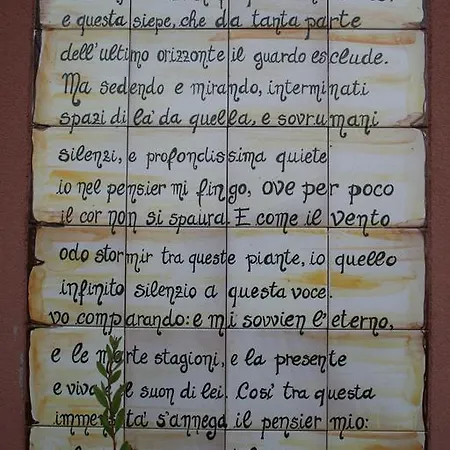 e questa siepe, che da tanta parte
dell'ultimo orizzonte il guardo esclude.
Ma sedendo e mirando, interminati
spazi di la' da quella, e sovrumani
silenzi, e profondissima quiete
io nel pensier mi fingo, ove per poco
il cor non si spaura. E come il vento
odo stormir tra queste piante, io quello
infinito silenzio a questa voce
vo comparando: e mi sovvien l'eterno,
e le morte stagioni, e la presente
e viva il suon di lei. Cosi' tra questa
immensita' s'annega il pensier mio: